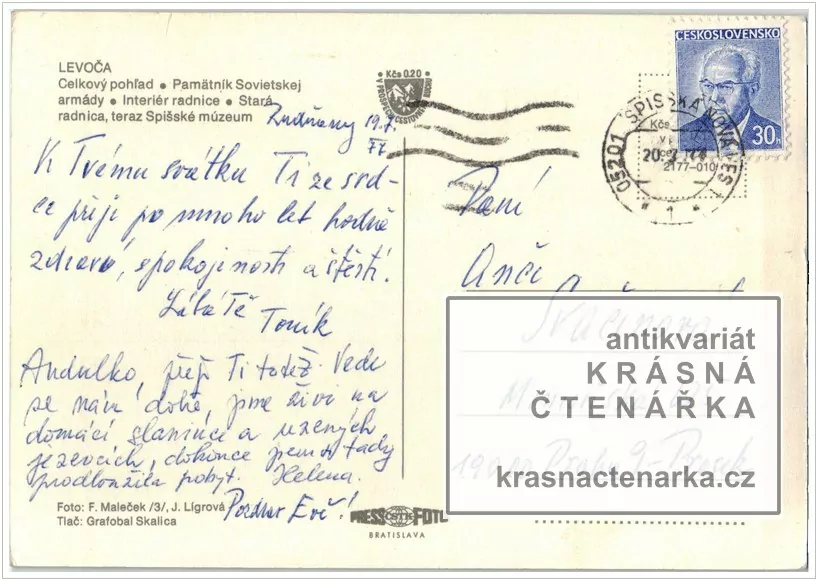 LEVOČA
Celkový pohľad • Pamätník Sovietskej
armády • Interiér radnice • Stará
radnica, teraz Spišské múzeum
Kčs 0.20
ČESKOSLOVENSKO
30h
05201 SPIŠSKÁ NOVÁ VES 1
2177-010
19.7.
77
K Tvému svátku Ti ze srd-
ce přeji po mnoho let hodně
zdraví, spokojenosti a štěstí.
Líbá Tě
Toník
Andulko, přeji Ti totéž. Vede
se nám dobře, jsme živi na
domácí slanince a uzených
jezevcích, dokonce jsem si tady
prodloužila pobyt. Helena.
Pozdrav Evě!
Paní
Anči
Svačinová
19000 Praha 9-Prosek
antikvariát
KRÁSNÁ
ČTENÁŘKA
krasnactenarka.cz
Foto: F. Maleček /3/, J. Lígrová
Tlač: Grafobal Skalica
PRESS ČSTK FOTO
BRATISLAVA